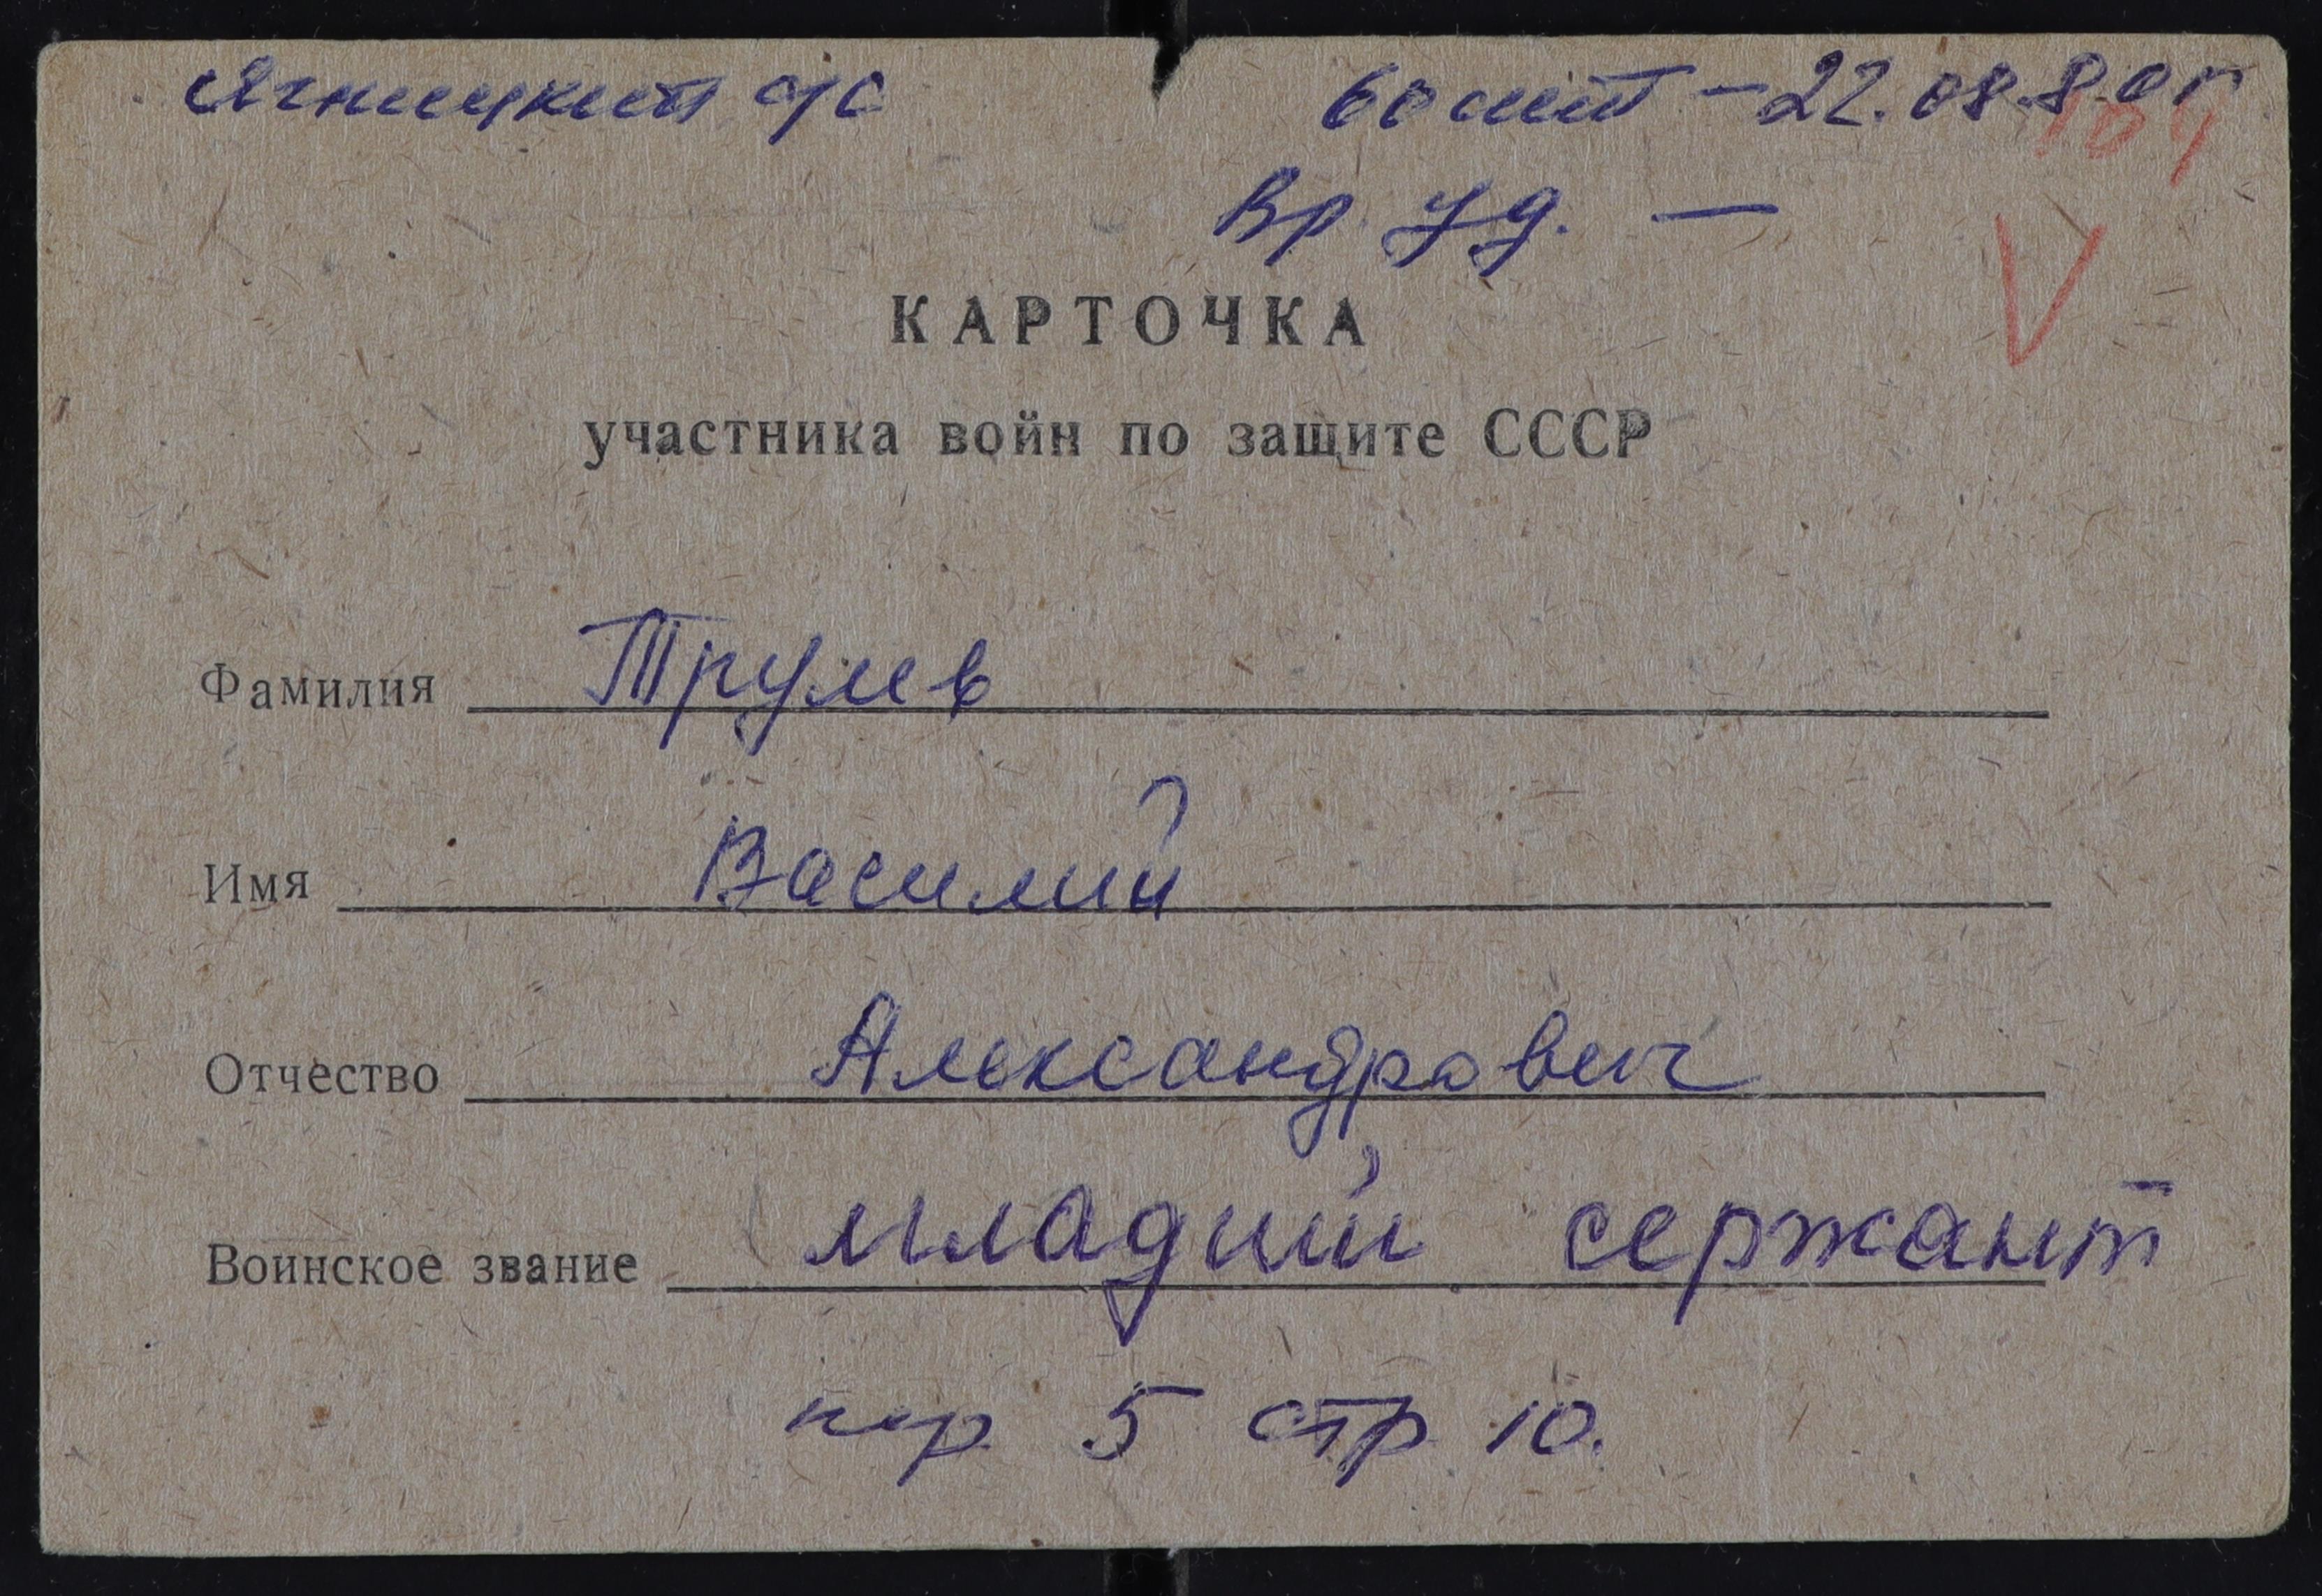 Ягницкий с/с 60 лет - 22.08.80г
Вр. уд. —
КАРТОЧКА
участника войн по защите СССР
Фамилия Трулев
Имя Василий
Отчество Александрович
Воинское звание младший сержант
кор. 5 стр. 10.